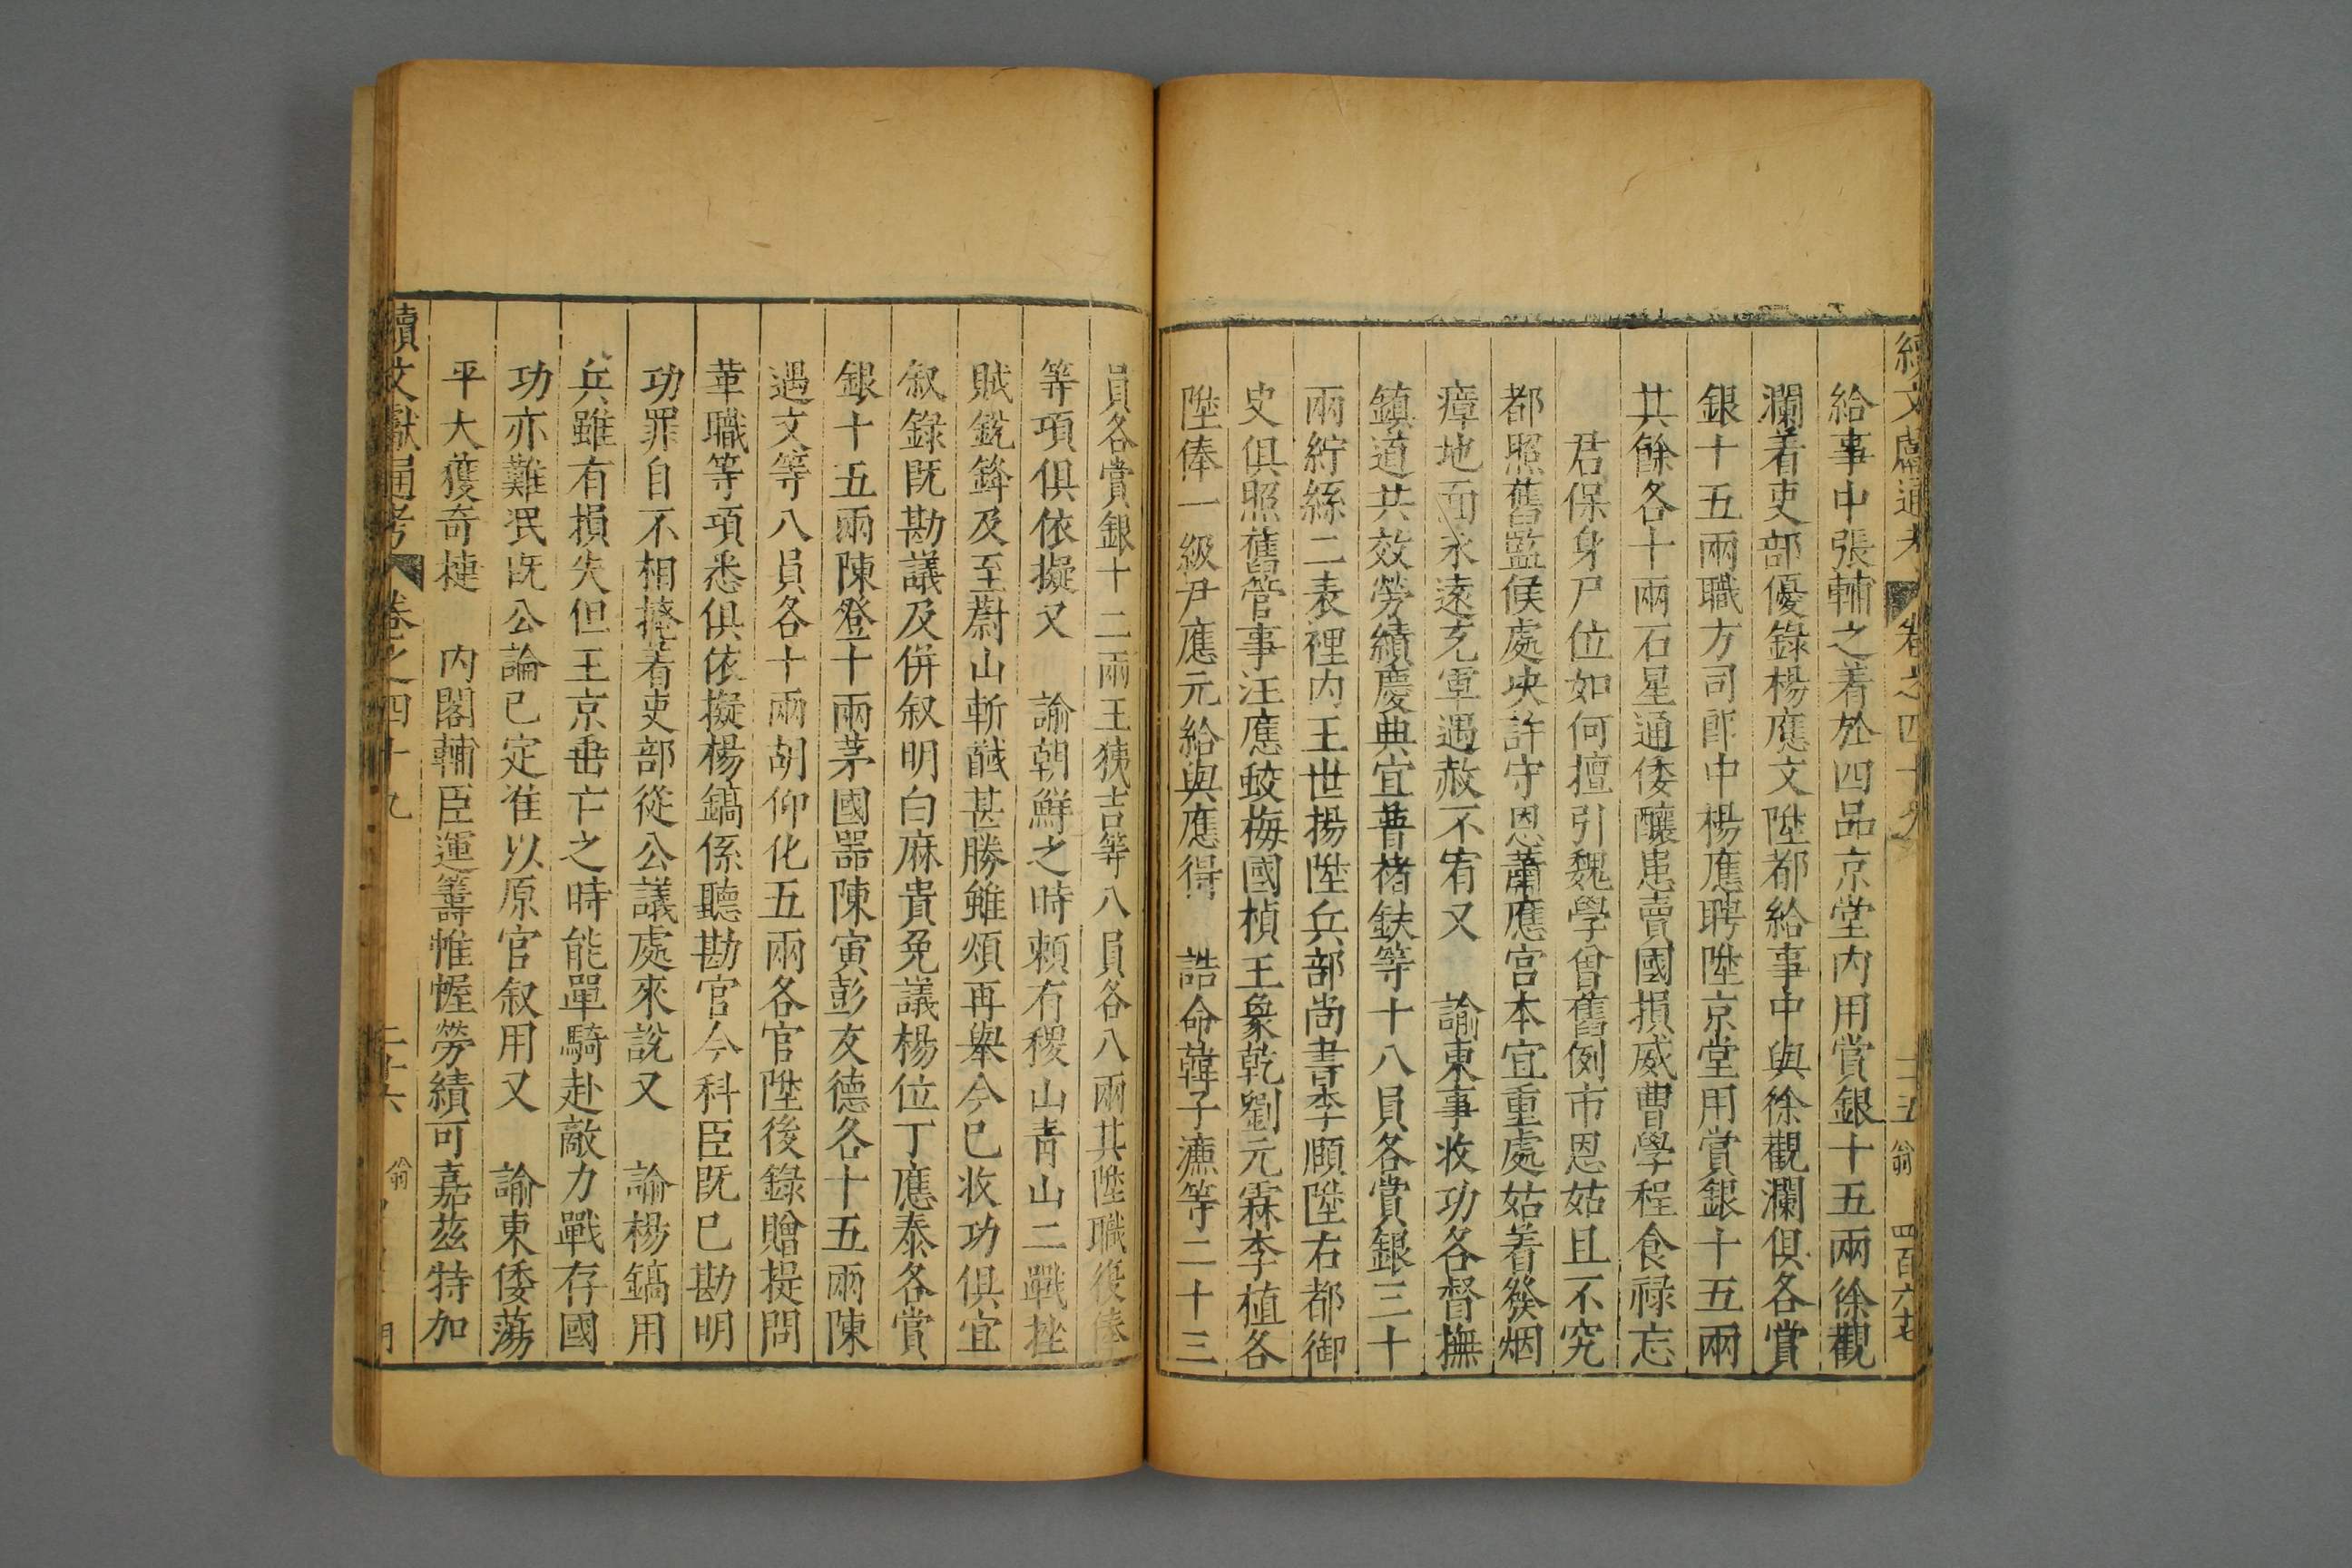 續文獻通考 卷之四十九 二十五 翁 四百六十七
給事中張輔之着於四品京堂內用賞銀十五兩徐觀
瀾着吏部優錄楊應文陞都給事中與徐觀瀾俱各賞
銀十五兩職方司郎中楊應聘陞京堂用賞銀十五兩
其餘各十兩石星通倭釀患賣國損威曹學程食祿忘
君保身尸位如何擅引魏學曾舊例市恩姑且不究
都照舊監候處決許守恩蕭應宮本宜重處姑着發烟
瘴地面永遠充軍遇赦不宥又 諭東事收功各督撫
鎮道共效勞績慶典宜普楮鈇等十八員各賞銀三十
兩紵絲二表裡內王世揚陞兵部尚書李頤陞右都御
史俱照舊管事汪應蛟梅國楨王象乾劉元霖李植各
陞俸一級尹應元給與應得 誥命韓子濂等二十三
員各賞銀十二兩王㺄吉等八員各八兩其陞職復俸
等項俱依擬又 諭朝鮮之時頼有稷山青山二戰挫
賊銳鋒及至蔚山斬馘甚勝雖煩再舉今已收功俱宜
叙錄既勘議及併叙明白麻貴免議楊位丁應泰各賞
銀十五兩陳登十兩茅國噐陳寅彭友德各十五兩陳
遇文等八員各十兩胡仰化五兩各官陞後錄贈提問
革職等項悉俱依擬楊鎬係聽勘官今科臣既已勘明
功罪自不相掩着吏部從公議處來說又 諭楊鎬用
兵雖有損失但王京垂亡之時能單騎赴敵力戰存國
功亦難泯既公論已定准以原官叙用又 諭東倭蕩
平大獲奇捷 內閣輔臣運籌惟幄勞績可嘉茲特加
續文獻通考 卷之四十九 二十六 翁